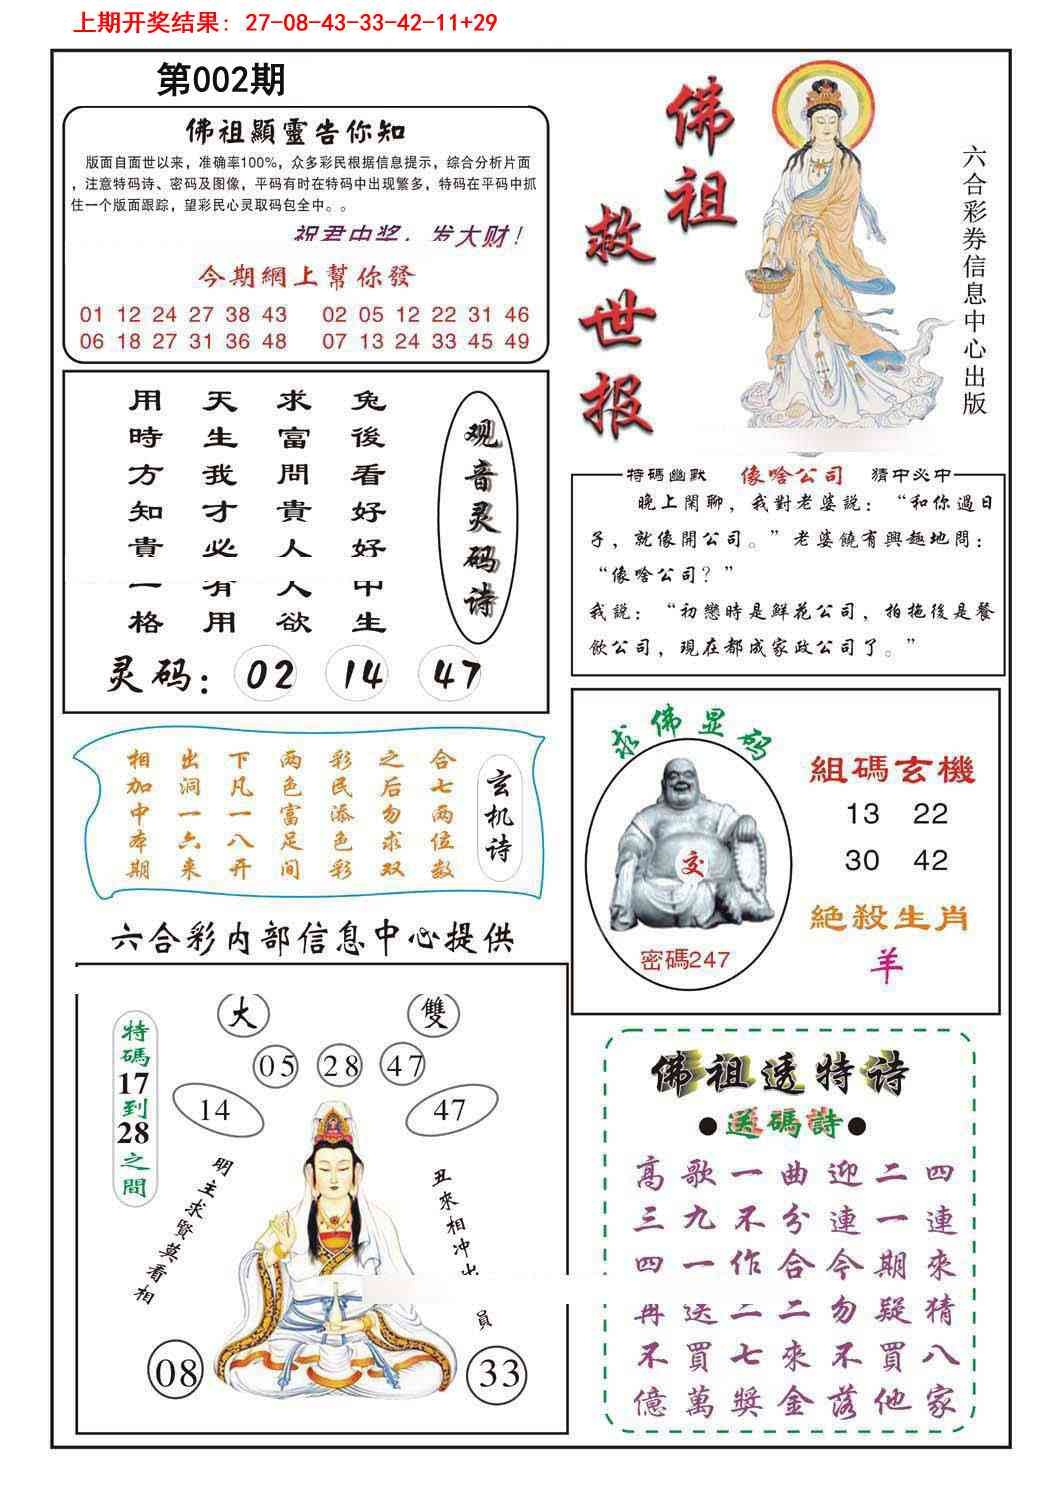 上期开奖结果: 27-08-43-33-42-11+29
第002期
佛祖顯靈告你知
版面自面世以来，准确率100%，众多彩民根据信息提示，综合分析片面
，注意特码诗、密码及图像，平码有时在特码中出现繁多，特码在平码中抓
住一个版面跟踪，望彩民心灵取码包全中。。
祝君中奖，发大财！
今期網上幫你發
01 12 24 27 38 43 02 05 12 22 31 46
06 18 27 31 36 48 07 13 24 33 45 49
佛祖
救世报
六合彩券信息中心出版
兔後看好好中生
求富問貴人人欲
天生我才必有用
用時方知貴一格
观音灵码诗
灵码：02 14 47
特碼幽默 像啥公司 猜中必中
晚上閑聊，我對老婆説：“和你過日
子，就像開公司。”老婆饒有興趣地問：
“像啥公司？”
我説：“初戀時是鮮花公司，拍拖後是餐
飲公司，現在都成家政公司了。”
玄机诗
合七两位数
之后勿求双
彩民添色彩
两色富足间
下凡一八开
出洞一六来
相加中本期
求佛显码
交
密碼247
組碼玄機
13 22
30 42
絕殺生肖
羊
六合彩内部信息中心提供
大 雙
05 28 47
14 47
特碼17到28之間
明主求賢莫看相
丑來相冲出
員
08 33
佛祖透特诗
●送碼詩●
高歌一曲迎二四
三九不分連一連
四一作合今期來
再送二二勿疑猜
不買七來不買八
億萬獎金落他家